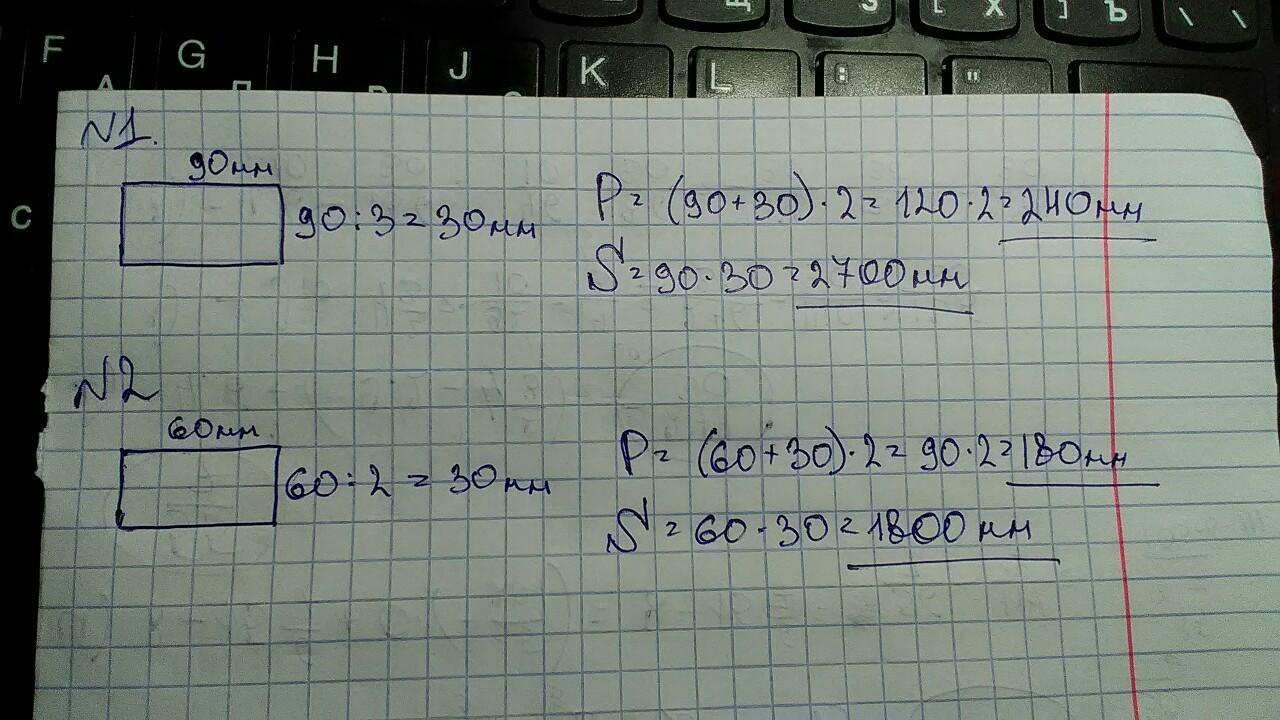 Щ З [ Х ] Ъ \ \
F G H J K L : "
А П Р
C
N1.
90мм
90:3=30мм
P=(90+30)·2=120·2=240мм
S=90·30=2700мм
N2
60мм
60:2=30мм
P=(60+30)·2=90·2=180мм
S=60·30=1800мм